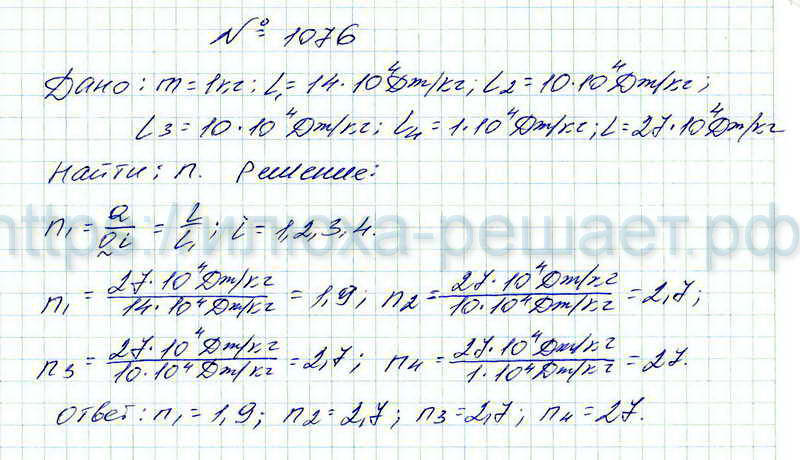 № 1076
Дано: m=1кг; L₁=14·10⁴Дж/кг; L₂=10·10⁴Дж/кг;
L₃=10·10⁴Дж/кг; L₄=1·10⁴Дж/кг; L=27·10⁴Дж/кг
Найти: n. Решение:
n₁ = Q/Qi = L/L₁; i = 1,2,3,4.
https://илюха-решает.рф
n₁ = 27·10⁴Дж/кг / 14·10⁴Дж/кг = 1,9; n₂ = 27·10⁴Дж/кг / 10·10⁴Дж/кг = 2,7;
n₃ = 27·10⁴Дж/кг / 10·10⁴Дж/кг = 2,7; n₄ = 27·10⁴Дж/кг / 1·10⁴Дж/кг = 27.
Ответ: n₁=1,9; n₂=2,7; n₃=2,7; n₄=27.